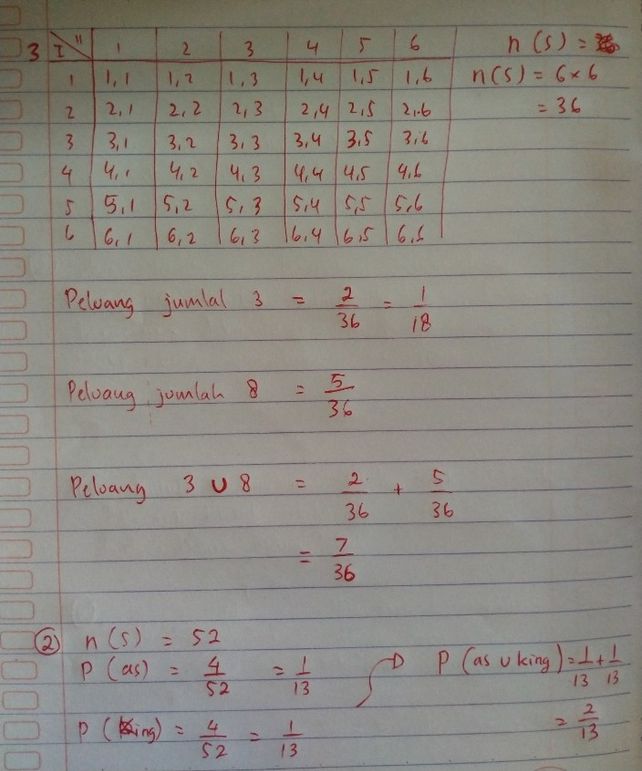 3 I \ II 1 2 3 4 5 6 n(s) =
1 1,1 1,2 1,3 1,4 1,5 1,6 n(s) = 6 x 6
2 2,1 2,2 2,3 2,4 2,5 2,6 = 36
3 3,1 3,2 3,3 3,4 3,5 3,6
4 4,1 4,2 4,3 4,4 4,5 4,6
5 5,1 5,2 5,3 5,4 5,5 5,6
6 6,1 6,2 6,3 6,4 6,5 6,6
Peluang jumlal 3 = 2/36 = 1/18
Peluang jumlah 8 = 5/36
Peluang 3 ∪ 8 = 2/36 + 5/36
= 7/36
② n(s) = 52
P (as) = 4/52 = 1/13
P (as ∪ king) = 1/13 + 1/13
P (king) = 4/52 = 1/13
= 2/13